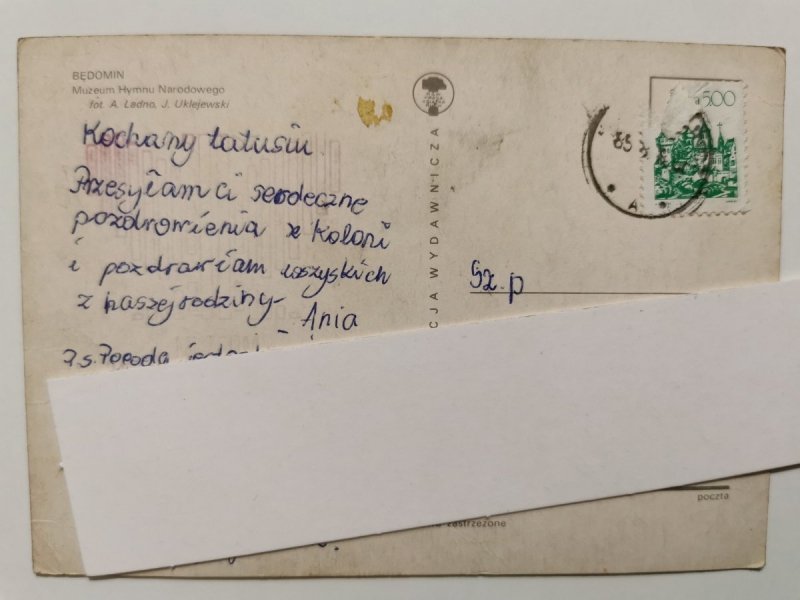 BĘDOMIN
Muzeum Hymnu Narodowego
fot. A. Ładno, J. Uklejewski
Kochany tatusiu
Przesyłam ci serdeczne
pozdrowienia z Koloni
i pozdrawiam wszyskich
z naszej rodziny-
- Ania
P.s. Pogoda
CJA WYDAWNICZA
500
85
A
Sz.p
poczta
zastrzeżone